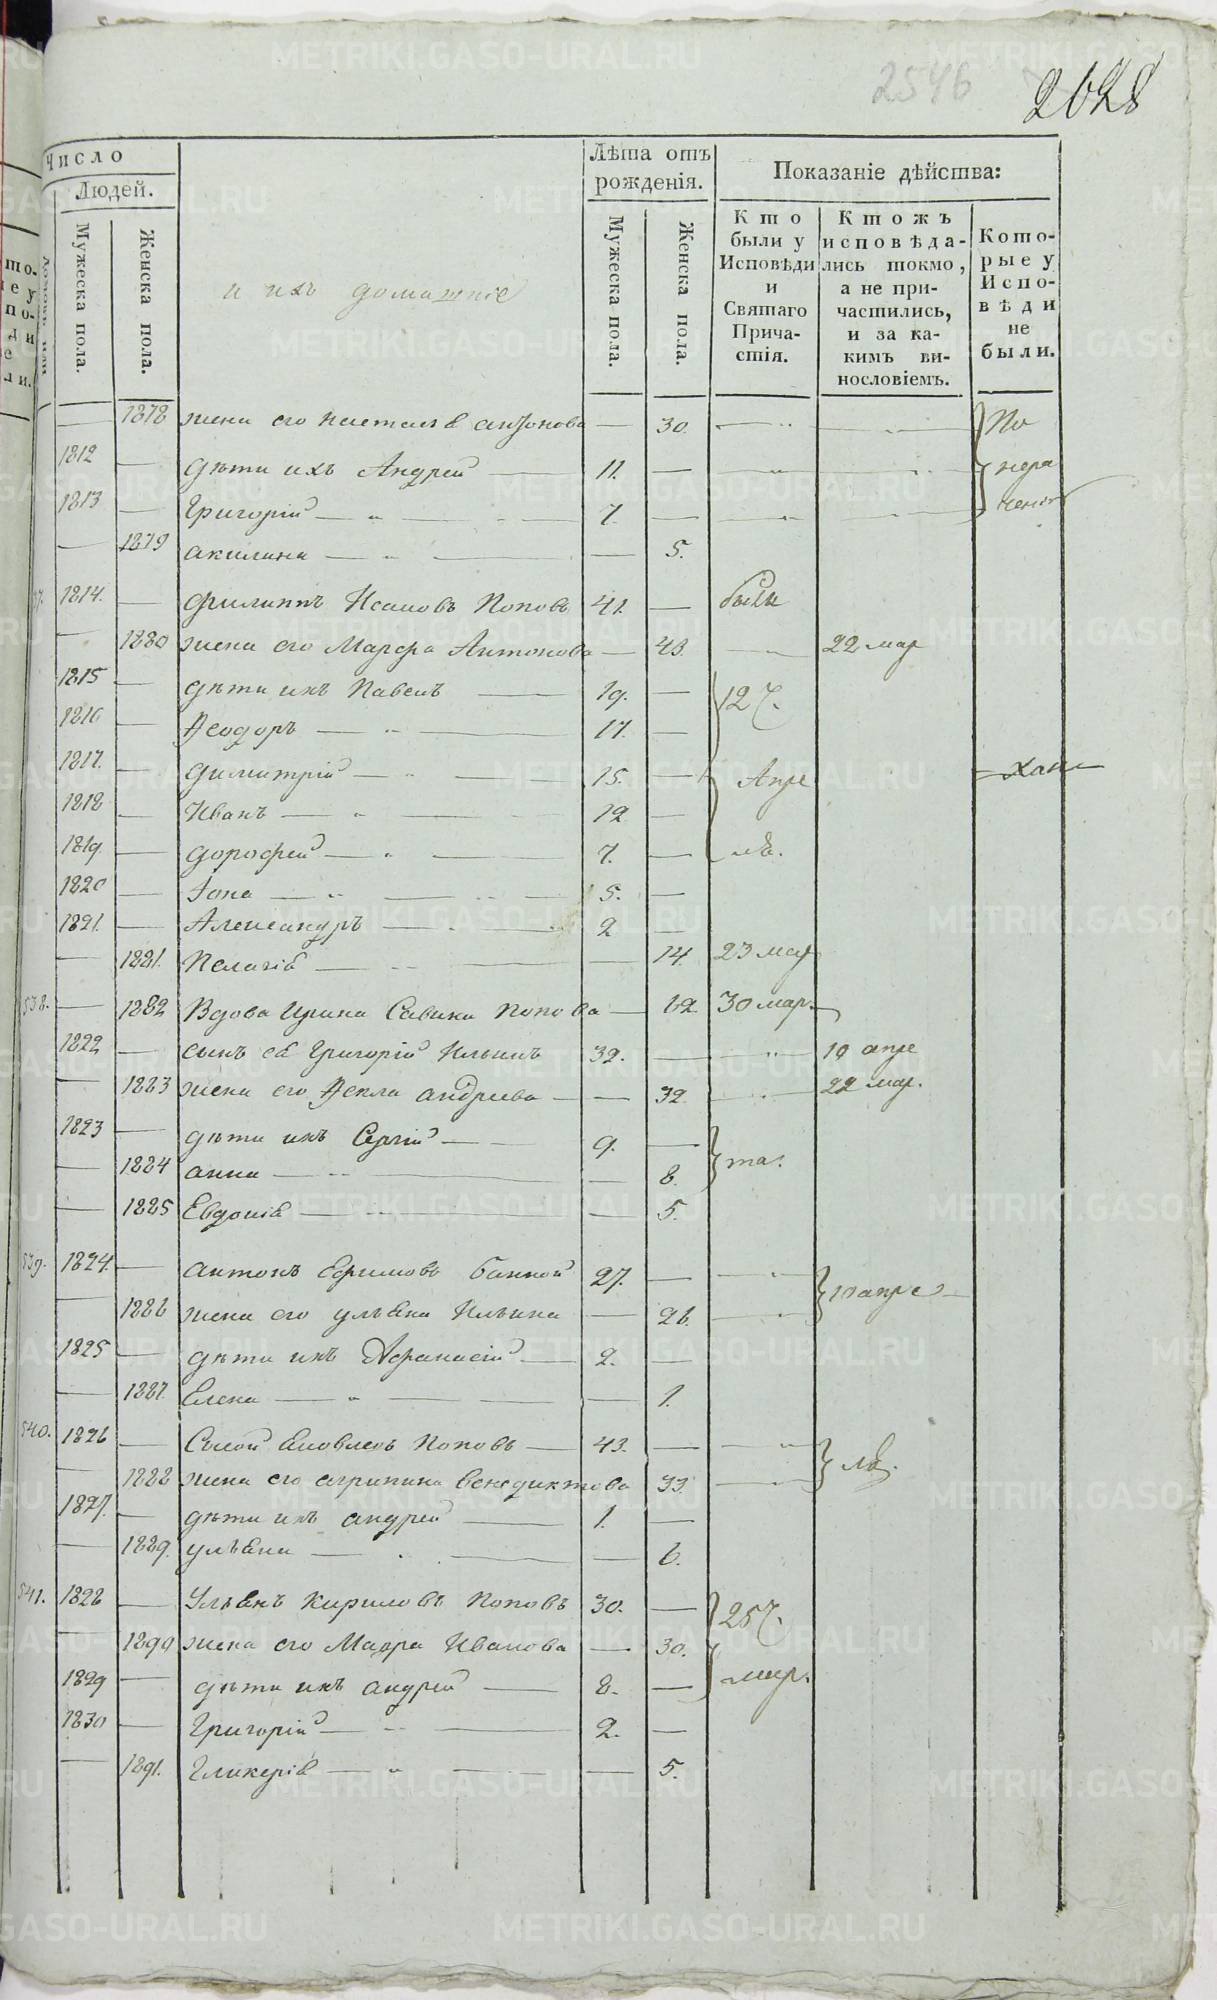 2546
2628
Число
Людей.
Мужеска пола.
Женска пола.
и ихъ домашніе
Лѣта отъ рожденія.
Мужеска пола.
Женска пола.
Показаніе дѣйства:
Кто были у Исповѣди и Святаго Причастія.
Ктожъ исповѣдались токмо, а не причастились, и за какимъ винословіемъ.
Которые у Исповѣди не были.
1878 жена его антонова 30. По
1812 дѣти ихъ Андрей 11. нера
1813 Григорій 7.
1879 акилина 5.
1814. Филиппъ Исаковъ Поповъ 41. были
1880 жена его Марфа Антонова 43. 22 мар
1815 дѣти ихъ Павелъ 19. 12 Ч.
1816 Ѳеодоръ 17.
1817. Димитрій 15. Апре
1818 Иванъ 12
1819. дорофей 7. лѣ.
1820 Іона 5.
1821. Александръ 2
1881. Пелагіѣ 14. 23 мар
538. 1882 Вдова Ирина Савина Попова 62 30 мар.
1822 сынъ еѣ Григорій Ильинъ 32. 10 апре
1883 жена его Ѳекла андреева 32 22 мар.
1823 дѣти ихъ Сергій 9. та.
1884 анна 8.
1885 Евдокіѣ 5.
539. 1824. антонъ Ефимовъ банной 27. 10 апре
1886 жена его ульѣна Ильина 26.
1825 дѣти ихъ Афанасій 2.
1887. Елена 1.
540. 1826 Сысой Поповъ 43.
1888 жена его агрипина венедиктова 33.
1827. дѣти ихъ андрей 1.
1889. ульѣна 6.
541. 1828 Ульѣнъ Кириловъ Поповъ 30. 25 Ч.
1890 жена его Мавра Иванова 30.
1829 дѣти ихъ андрей 8. мар.
1830 Григорій 2.
1891. Гликеріѣ 5.
METRIKI.GASO-URAL.RU